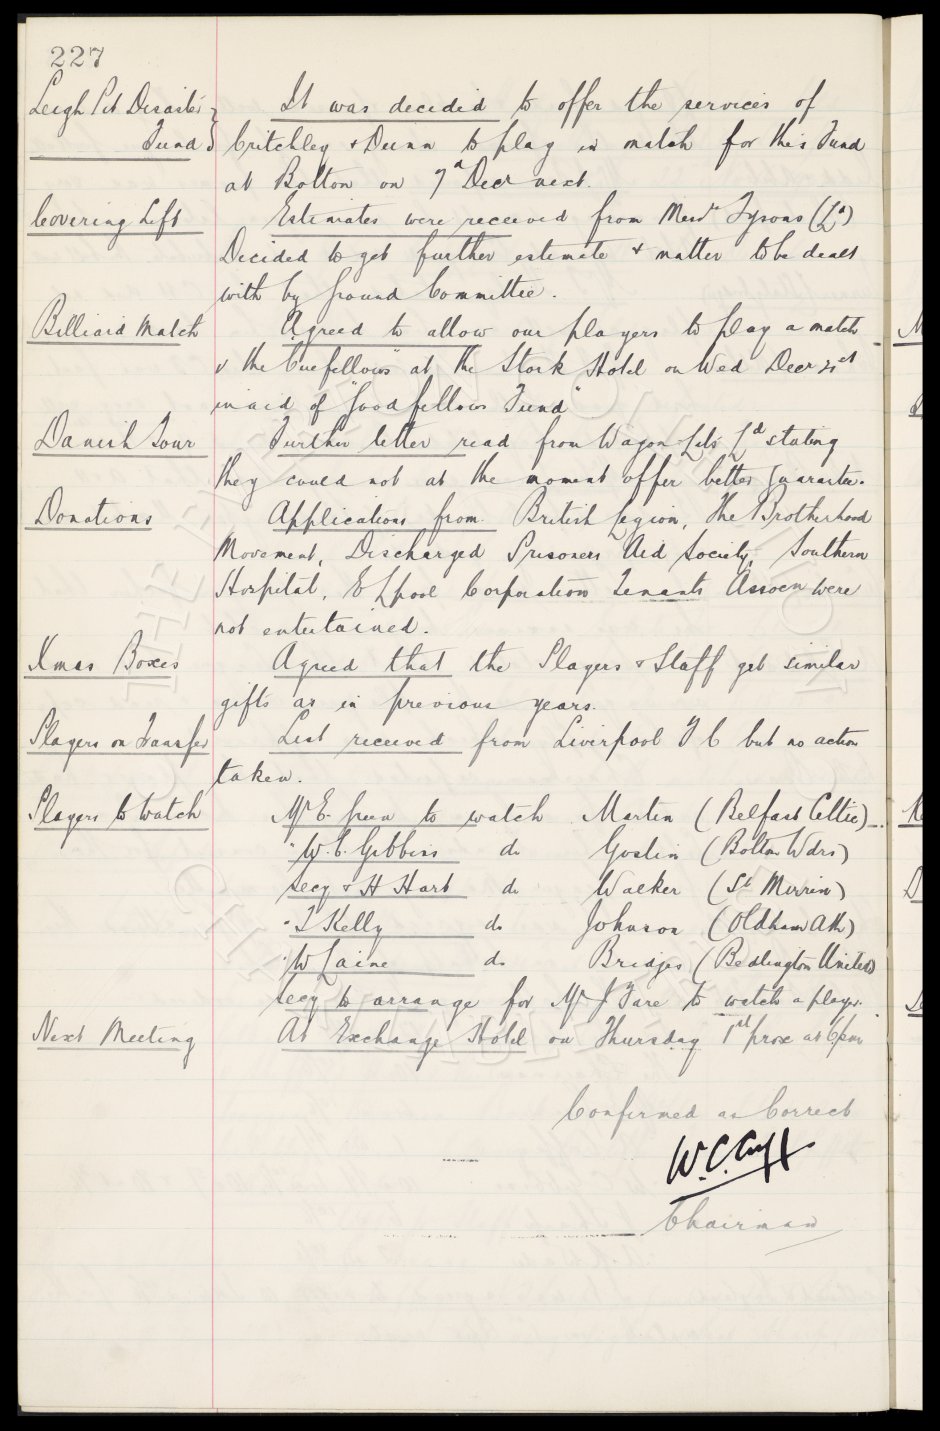 227
Leigh Pit Disaster It was decided to offer the services of
Fund Critchley & Dunn to play in match for this Fund
at Bolton on 7th Decr next.
Covering Lift Estimates were received from Messrs Tysons (Ld)
Decided to get further estimate & matter to be dealt
with by Ground Committee.
Billiard Match Agreed to allow our players to play a match
v the "Cuefellows" at the Stork Hotel on Wed Decr 21st
in aid of "Goodfellows Fund"
Danish Tour Further letter read from Wagon-Lits Ld stating
they could not at the moment offer better guarantee.
Donations Applications from British Legion, The Brotherhood
Movement, Discharged Prisoners Aid Society, Southern
Hospital, E Lpool Corporation Tenants Assocn were
not entertained.
Xmas Boxes Agreed that the Players & Staff get similar
gifts as in previous years.
Players on Transfer List received from Liverpool F C but no action
taken.
Players to Watch Mr E. Green to watch Martin (Belfast Celtic)
" W.C. Gibbins do Goslin (Bolton Wdrs)
Secy & H Hart do Walker (St Mirren)
" T Kelly do Johnson (Oldham Ath)
" W Laine do Bridges (Bedlington United)
Secy to arrange for Mr J Fare to watch a player.
Next Meeting At Exchange Hotel on Thursday 1st prox at 6pm
Confirmed as Correct
W.C. Cuff
Chairman